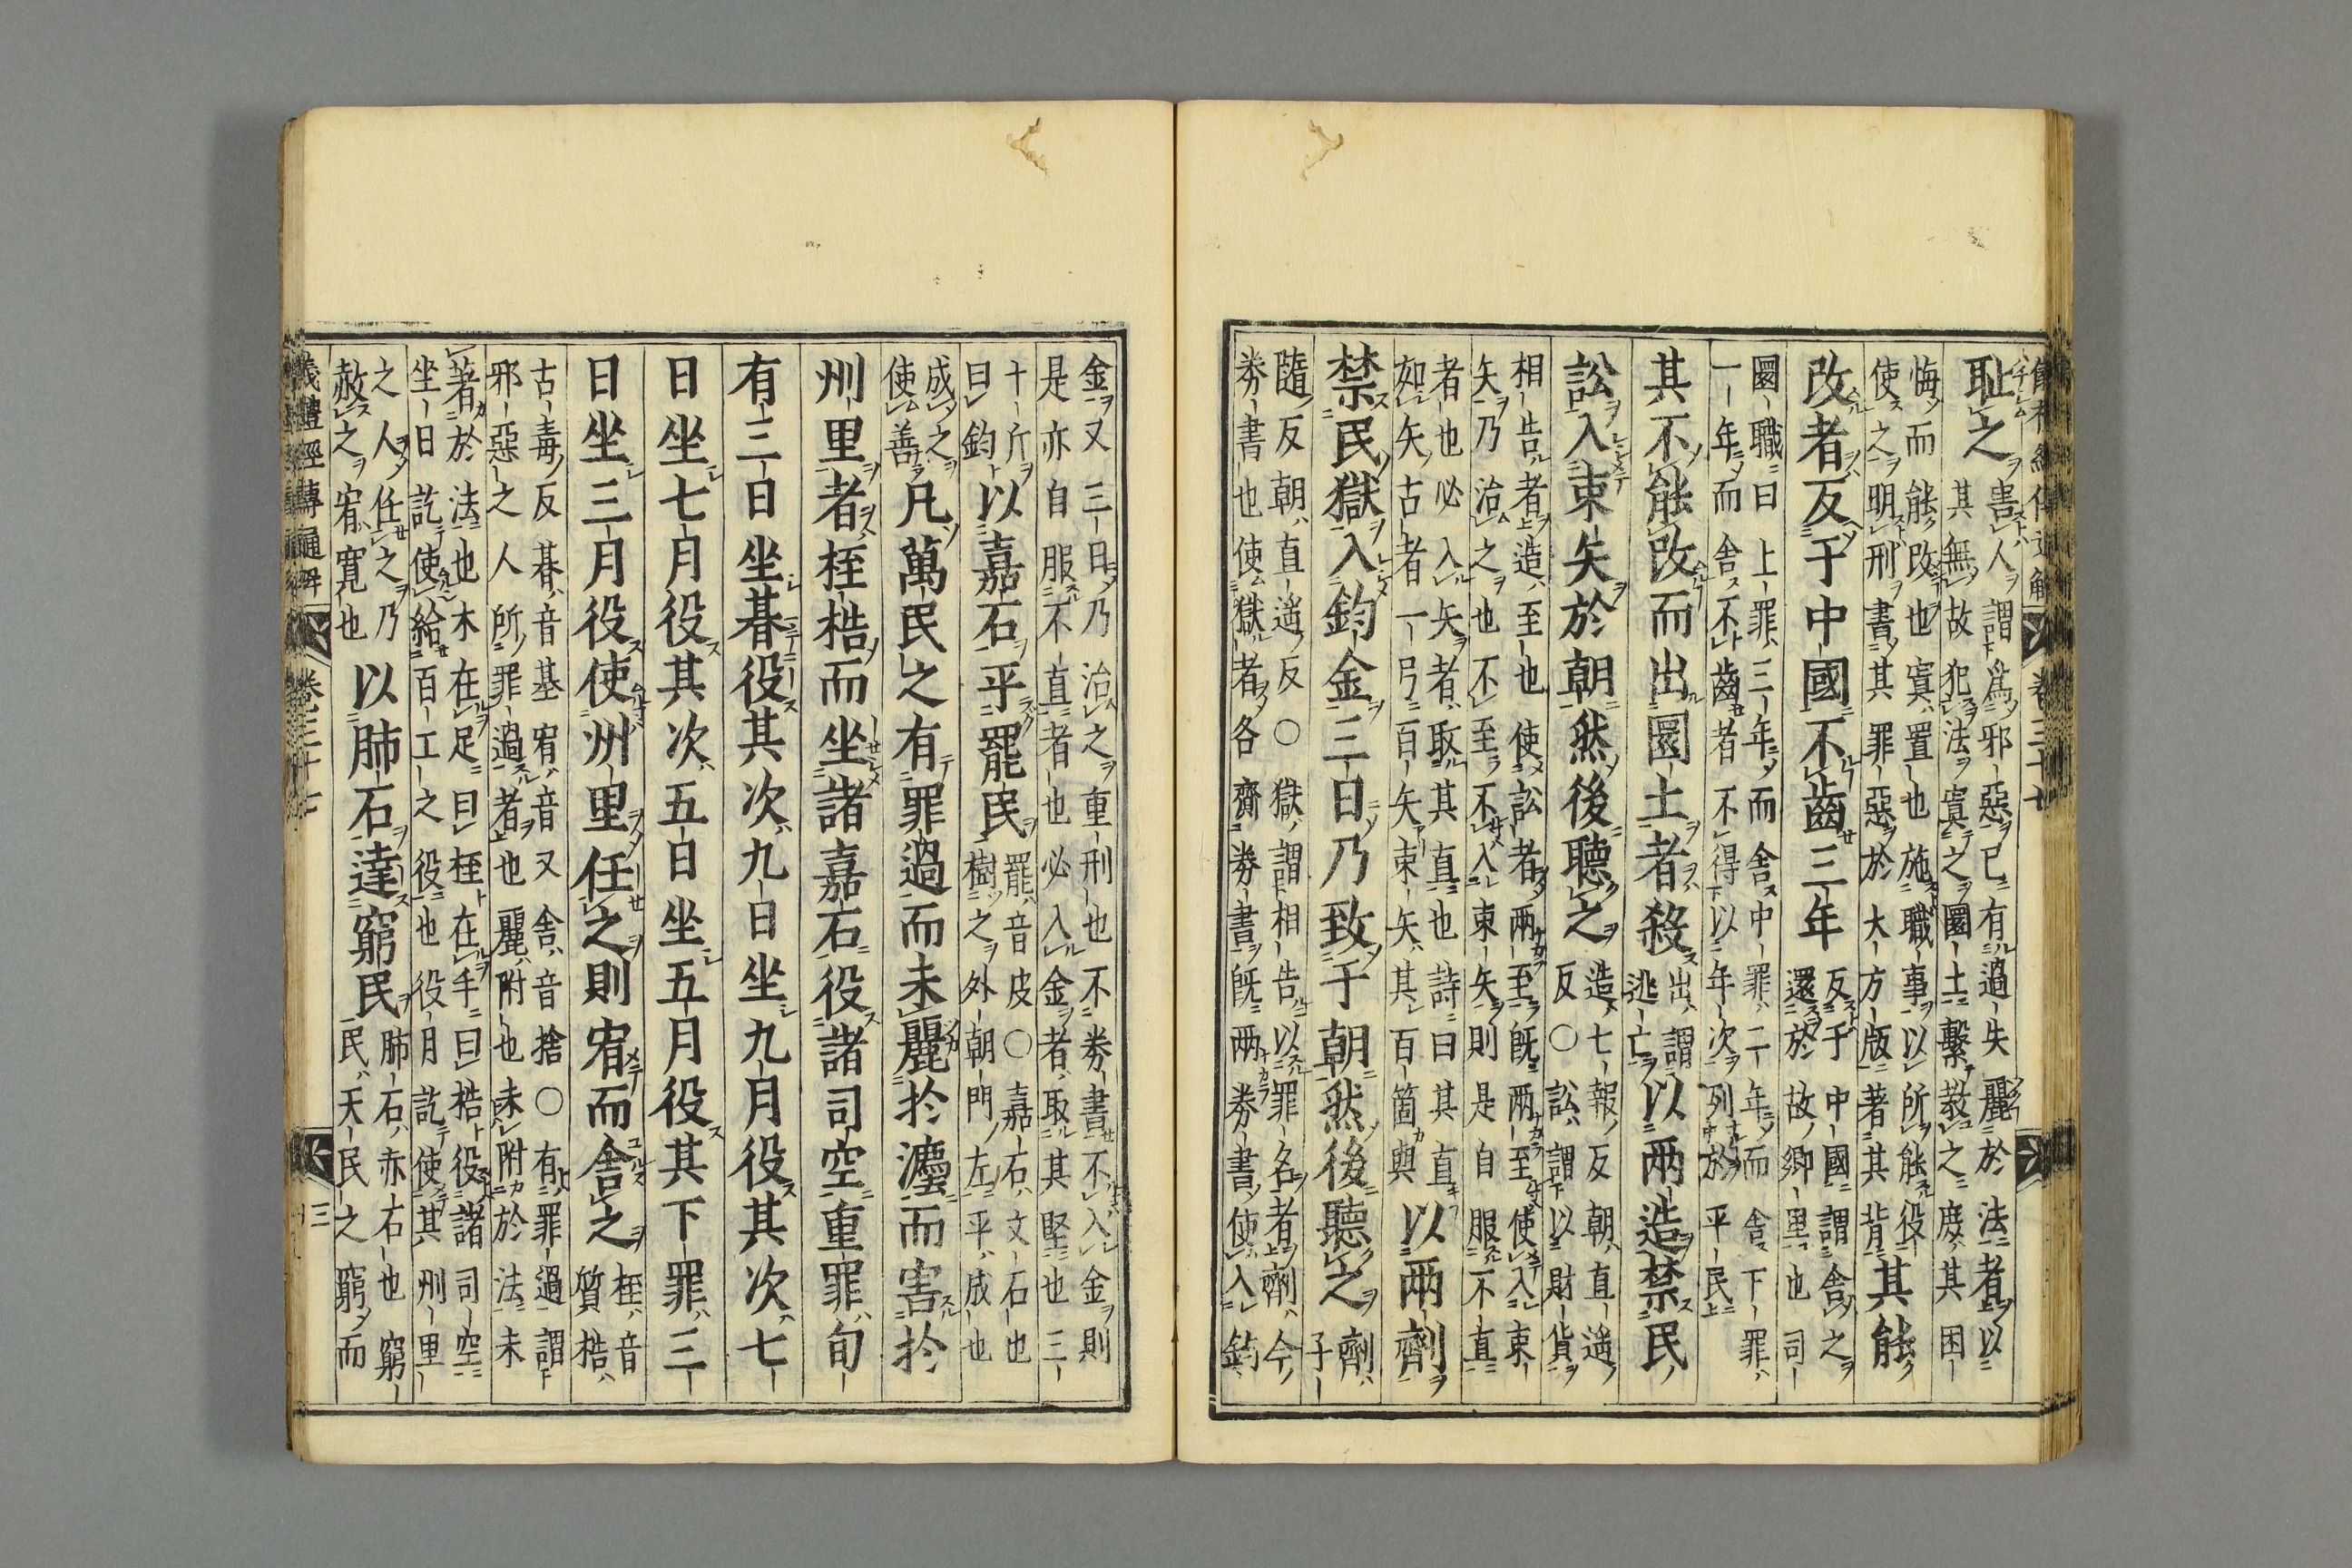 儀禮經傳通解 卷三十七
恥之 害人謂爲邪惡已有過失麗於法者以
其無故犯法寘之圜土繫教之庻其困
悔而能改也寘置也施職事以所能役
使之明刑書其罪惡於大方版著其背 其能
改者反于中國不齒三年 反于中國謂舍之
還於故鄉里也司
圜職曰上罪三年而舍中罪二年而舍下罪
一年而舍不齒者不得以年次列於平民
其不能改而出圜土者殺 出謂
逃亡 以兩造禁民
訟入束矢於朝然後聽之 造七報反朝直遙
反○訟謂以財貨
相告者造至也使訟者兩至既兩至使入束
矢乃治之也不至不入束矢則是自服不直
者也必入矢者取其直也詩曰其直
如矢古者一弓百矢束矢其百箇與 以兩劑
禁民獄入鈞金三日乃致于朝然後聽之 劑
子
隨反朝直遙反○獄謂相告以罪名者劑今
券書也使獄者各齎券書既兩券書使入鈞
金又三日乃治之重刑也不券書不入金則
是亦自服不直者也必入金者取其堅也三
十斤
曰鈞 以嘉石平罷民 罷音皮○嘉石文石也
樹之外朝門左平成也
成之
使善 凡萬民之有罪過而未麗於灋而害於
州里者桎梏而坐諸嘉石役諸司空重罪旬
有三日坐朞役其次九日坐九月役其次七
日坐七月役其次五日坐五月役其下罪三
日坐三月役使州里任之則宥而舍之 桎音
質梏
古毒反朞音基宥音又舍音捨○有罪過謂
邪惡之人所罪過者也麗附也未附於法未
著於法也木在足曰桎在手曰梏役諸司空
坐日訖使給百工之役也役月訖使其州里
之人任之乃
赦之宥寬也 以肺石達窮民 肺石赤石也窮
民天民之窮而
儀禮經傳通解 卷三十七 三